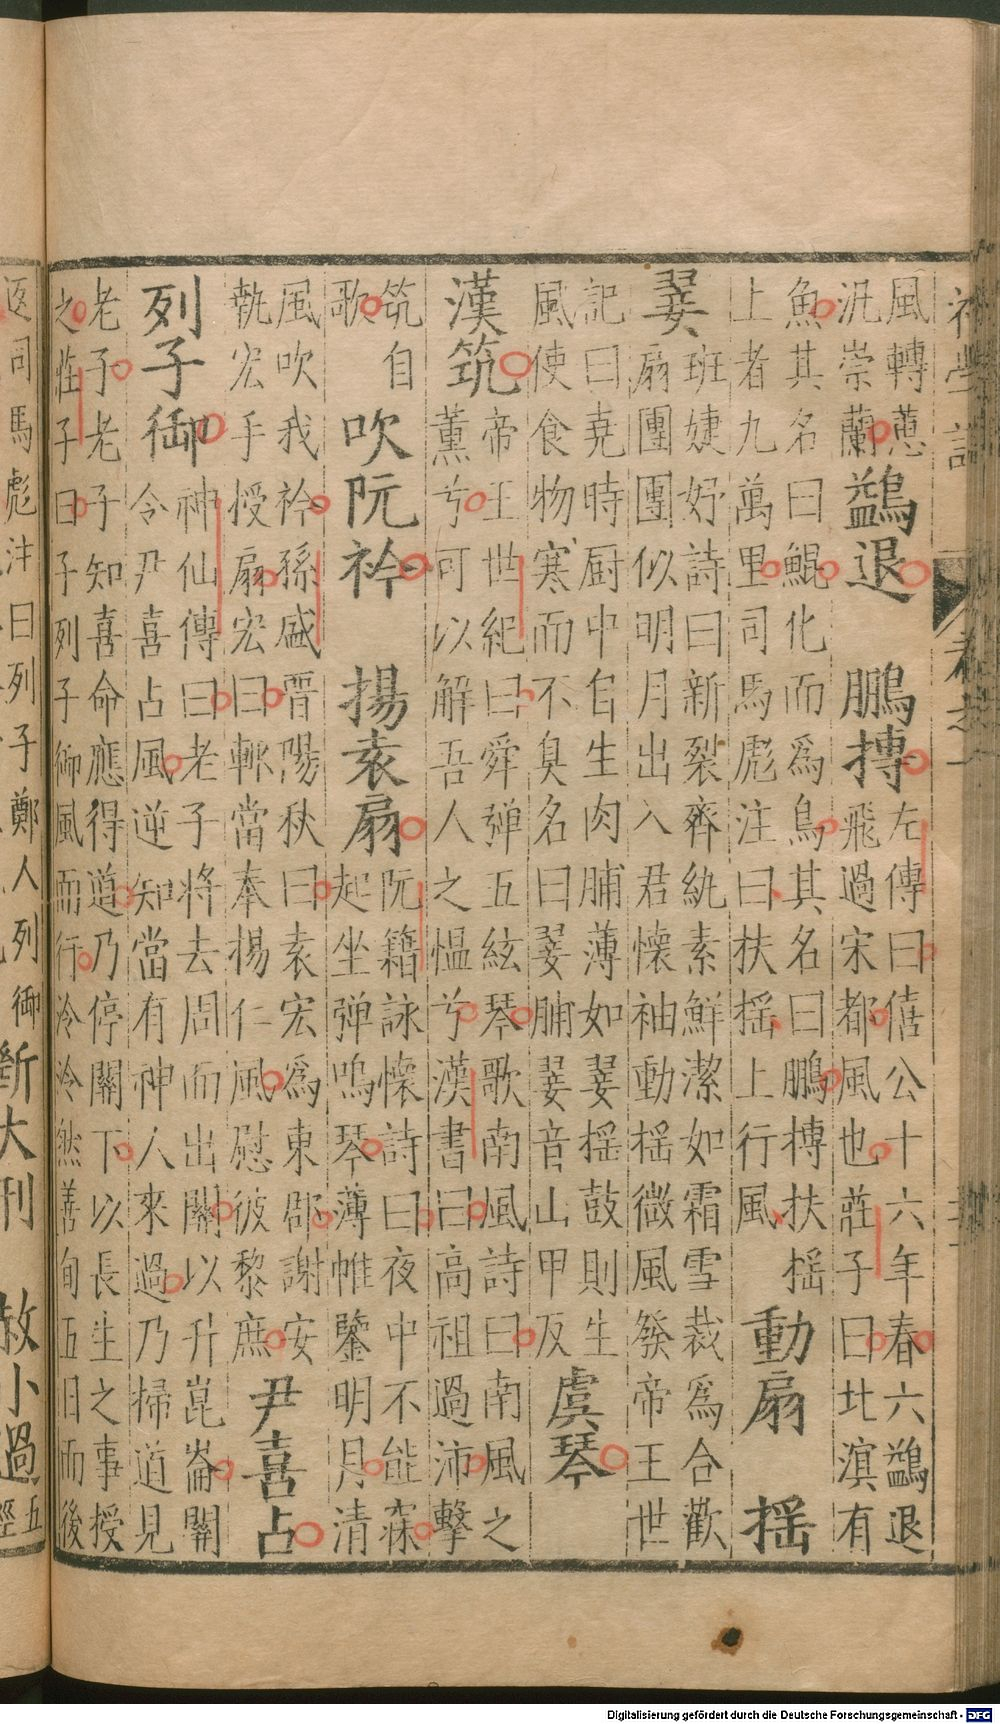 初學記 卷之一
風轉蕙
汎崇蘭
鷁退 鵬摶
左傳曰僖公十六年春六鷁退
飛過宋都風也莊子曰北溟有
魚其名曰鯤化而爲鳥其名曰鵬摶扶摇
上者九萬里司馬彪注曰扶摇上行風
動扇 揺
翣
班婕妤詩曰新裂齊紈素鮮潔如霜雪裁爲合歡
扇團團似明月出入君懷袖動摇微風發帝王世
記曰堯時厨中自生肉脯薄如翣摇鼓則生
風使食物寒而不臭名曰翣脯翣音山甲反
虞琴
漢筑
帝王世紀曰舜弹五絃琴歌南風詩曰南風之
薰兮可以解吾人之愠兮漢書曰高祖過沛擊
筑自
歌
吹阮衿 揚袁扇
阮籍詠懷詩曰夜中不能寐
起坐弹鳴琴薄帷鑒明月清
風吹我衿孫盛晉陽秋曰袁宏爲東郡謝安
執宏手授扇宏曰輒當奉揚仁風慰彼黎庶
尹喜占
列子御
神仙傳曰老子將去周而出關以升崑崙關
令尹喜占風逆知當有神人來過乃掃道見
老子老子知喜命應得道乃停關下以長生之事授
之莊子曰子列子御風而行泠泠然善旬五日而後
返司馬彪注曰列子鄭人列御
斷大刑 赦小過
五
經
Digitalisierung gefördert durch die Deutsche Forschungsgemeinschaft - DFG